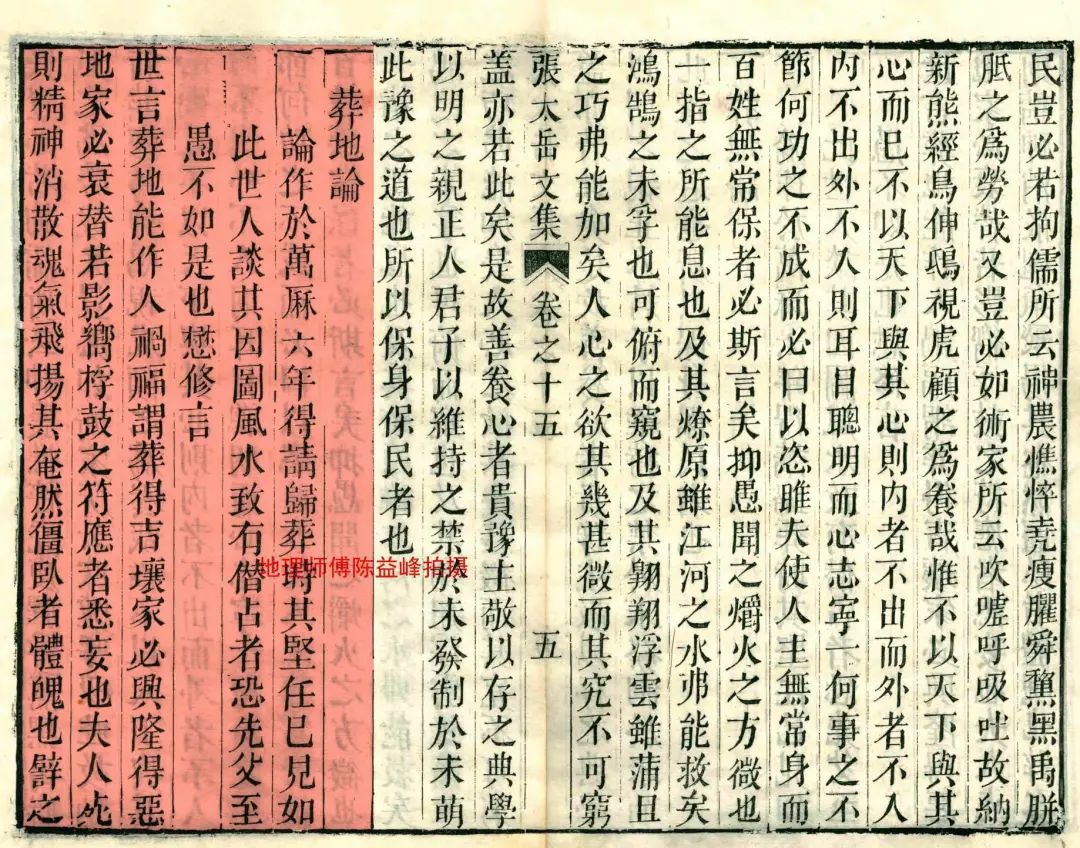 民豈必若拘儒所云神農憔悴堯瘦臞舜黧黑禹胼
胝之爲勞哉又豈必如術家所云吹噓呼吸吐故納
新熊經鳥伸鴟視虎顧之爲養哉惟不以天下與其
心而已不以天下與其心則内者不出而外者不入
内不出外不入則耳目聰明而心志寧一何事之不
節何功之不成而必曰以恣睢夫使人主無常身而
百姓無常保者必斯言矣抑愚聞之爝火之方微也
一指之所能息也及其燎原雖江河之水弗能救矣
鴻鵠之未孚也可俯而窺也及其翺翔浮雲雖蒲且
之巧弗能加矣人心之欲其幾甚微而其究不可窮
張太岳文集 卷之十五 五
蓋亦若此矣是故善養心者貴豫主敬以存之典學
以明之親正人君子以維持之禁於未發制於未萌
此豫之道也所以保身保民者也
葬地論
論作於萬厤六年得請歸葬時其堅任已見如
此世人談其因圖風水致有僭占者恐先父至
愚不如是也懋修言
世言葬地能作人禍福謂葬得吉壤家必興隆得惡
地家必衰替若影嚮桴鼓之符應者悉妄也夫人死
則精神消散魂氣飛揚其奄然僵臥者體魄也譬之
地理师傅陈益峰拍摄